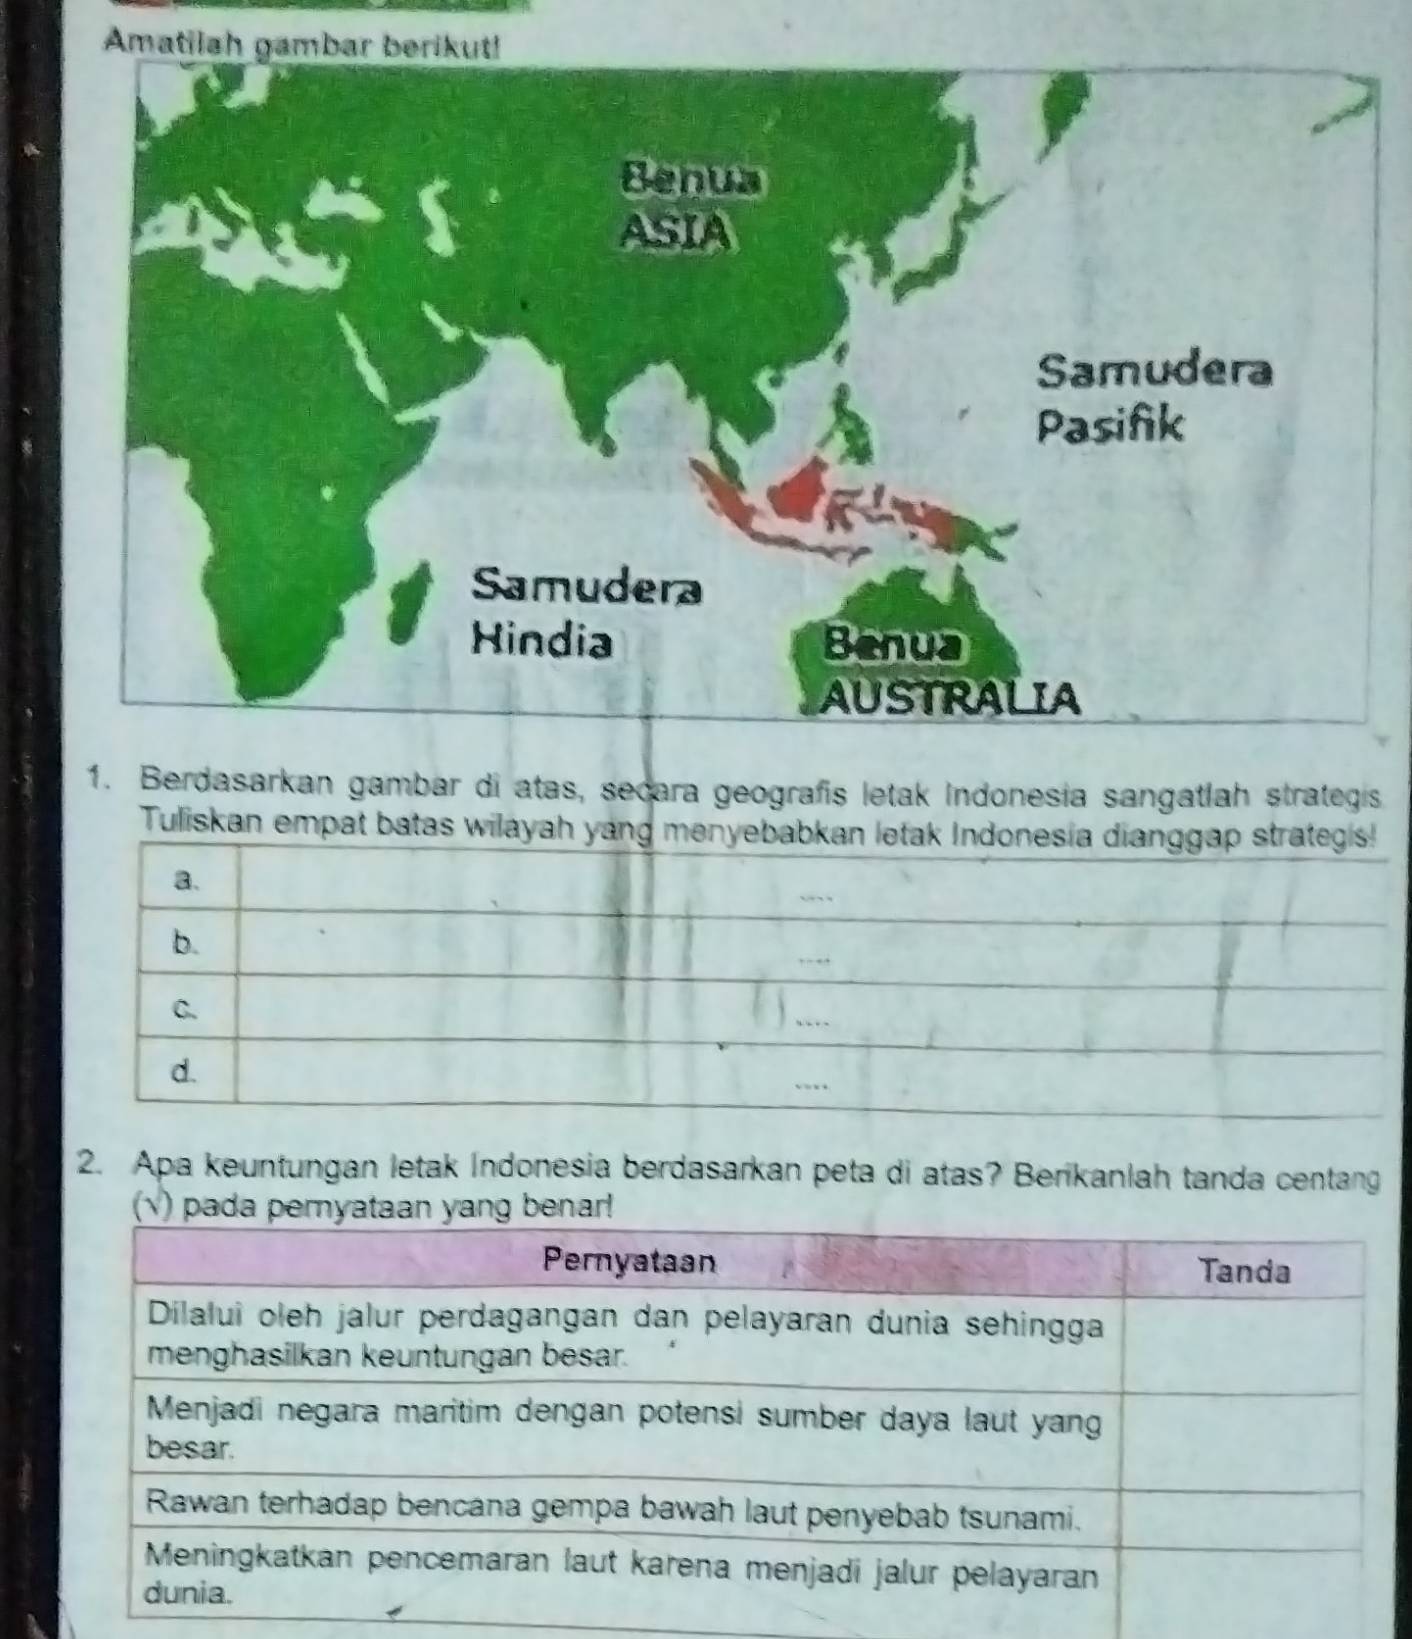 Amatilah gambar berikut!
Benua
ASIA
Samudera
Pasifik
Samudera
Hindia
Benua
AUSTRALIA
1. Berdasarkan gambar di atas, secara geografis letak Indonesia sangatlah strategis
Tuliskan empat batas wilayah yang menyebabkan letak Indonesia dianggap strategis!
a. ....
b. ....
c. ....
d. ....
2. Apa keuntungan letak Indonesia berdasarkan peta di atas? Berikanlah tanda centang
(√) pada pernyataan yang benar!
Pernyataan Tanda
Dilalui oleh jalur perdagangan dan pelayaran dunia sehingga
menghasilkan keuntungan besar.
Menjadi negara maritim dengan potensi sumber daya laut yang
besar.
Rawan terhadap bencana gempa bawah laut penyebab tsunami.
Meningkatkan pencemaran laut karena menjadi jalur pelayaran
dunia.